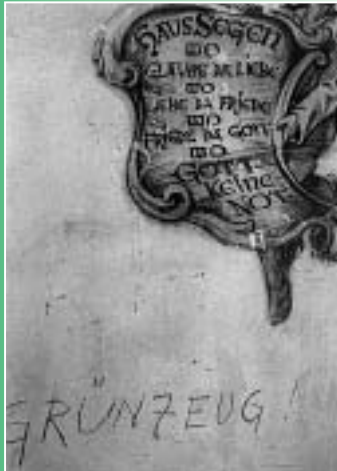 HAUSSEGEN
WO
GLAUBE DA LIEBE
WO
LIEBE DA FRIEDE
WO
FRIEDE DA GOTT
WO
GOTT
keine
NOT
GRÜNZEUG!